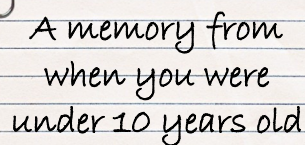 A memory from
when you were
under 10 years old